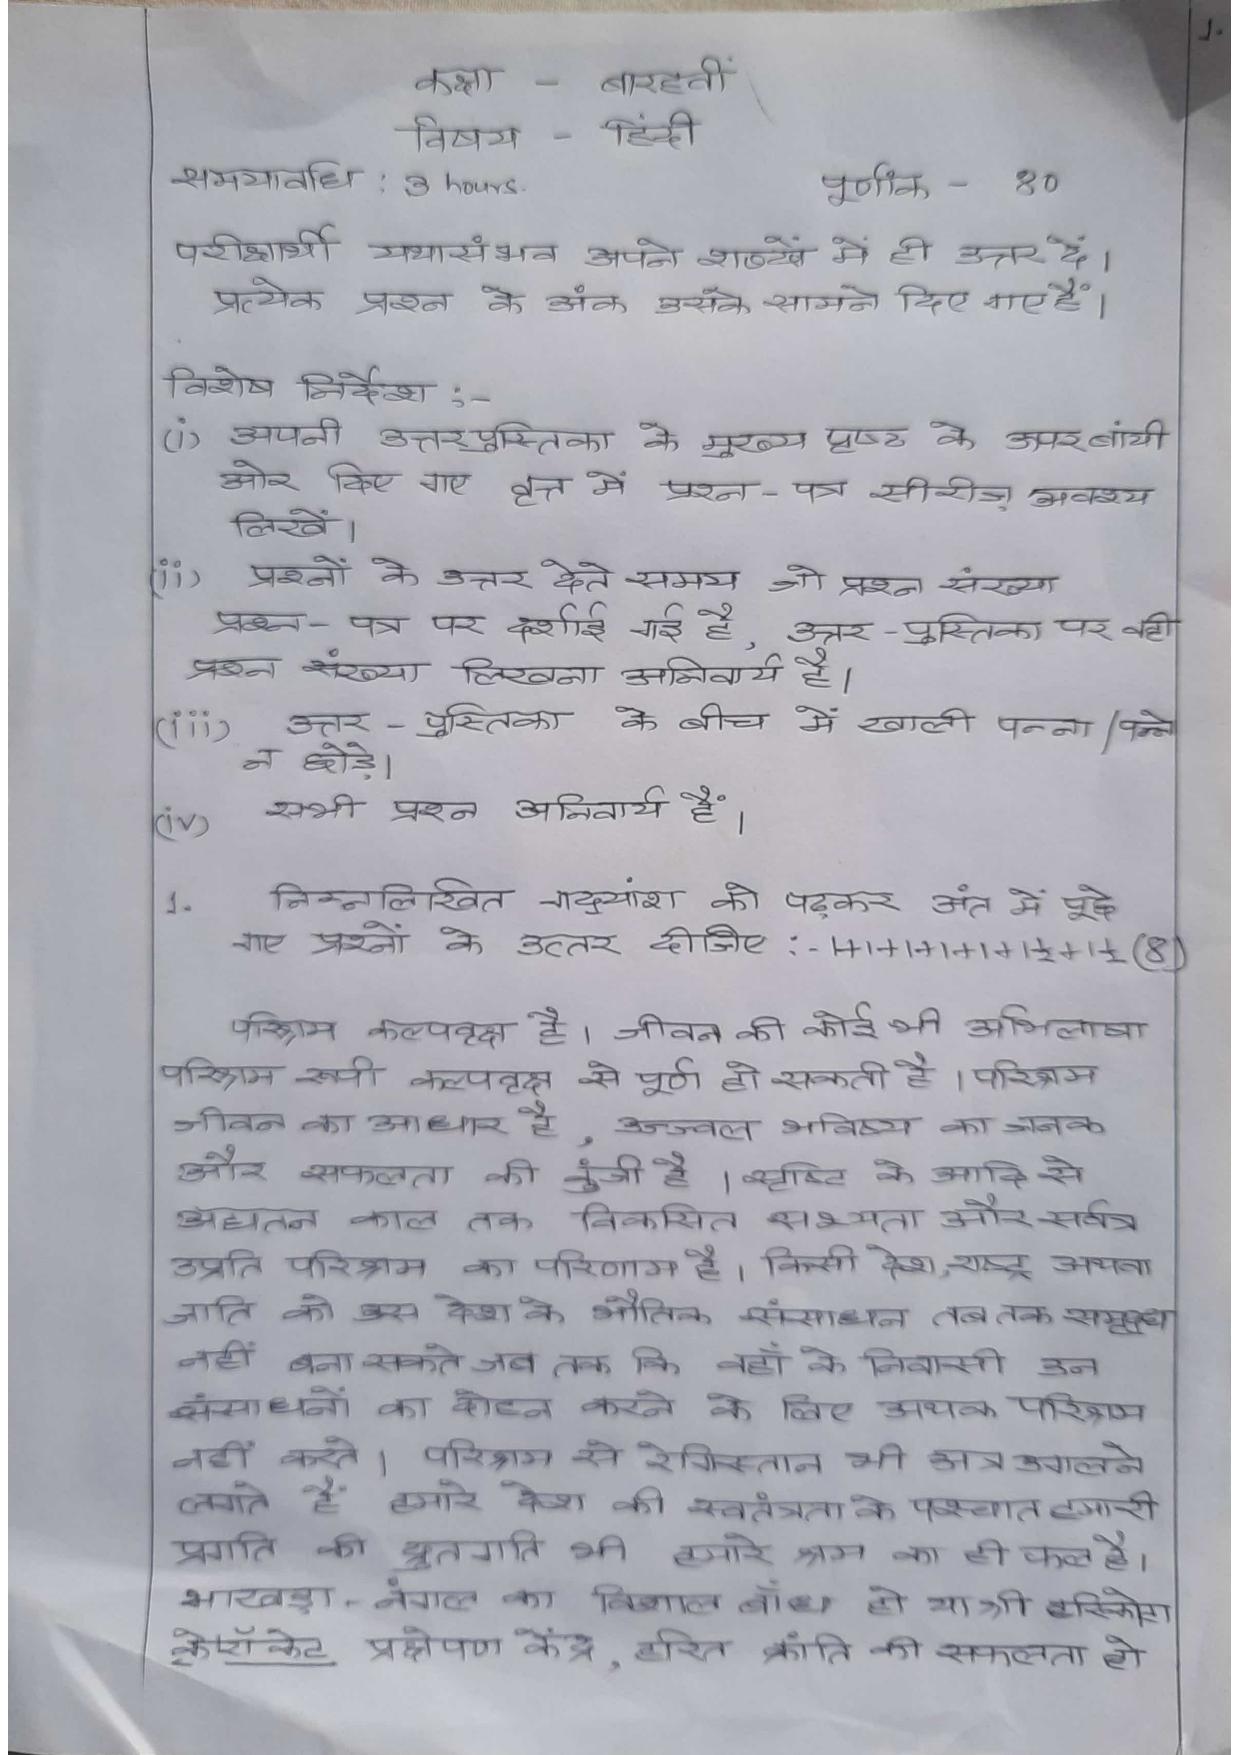 1.
कक्षा - बारहवीं
विषय - हिंदी
समयावधि : 3 hours. पूर्णांक - 80
परीक्षार्थी यथासंभव अपने शब्दों में ही उत्तर दें।
प्रत्येक प्रश्न के अंक उसके सामने दिए गए हैं।
विशेष निर्देश :-
(i) अपनी उत्तरपुस्तिका के मुख्य पृष्ठ के ऊपर बांयी
ओर दिए गए वृत्त में प्रश्न-पत्र सीरीज़ अवश्य
लिखें।
(ii) प्रश्नों के उत्तर देते समय जो प्रश्न संख्या
प्रश्न-पत्र पर दर्शाई गई है, उत्तर-पुस्तिका पर वही
प्रश्न संख्या लिखना अनिवार्य है।
(iii) उत्तर-पुस्तिका के बीच में खाली पन्ना/पन्ने
न छोड़े।
(iv) सभी प्रश्न अनिवार्य हैं।
1. निम्नलिखित गद्यांश को पढ़कर अंत में पूछे
गए प्रश्नों के उत्तर दीजिए :- 1+1+1+1+1+1½+1½ (8)
परिश्रम कल्पवृक्ष है। जीवन की कोई भी अभिलाषा
परिश्रम रूपी कल्पवृक्ष से पूर्ण हो सकती है। परिश्रम
जीवन का आधार है, उज्ज्वल भविष्य का जनक
और सफलता की कुंजी है। सृष्टि के आदि से
अद्यतन काल तक विकसित सभ्यता और सर्वत्र
उन्नति परिश्रम का परिणाम है। किसी देश, राष्ट्र अथवा
जाति को उस देश के भौतिक संसाधन तब तक समृद्ध
नहीं बना सकते जब तक कि वहाँ के निवासी उन
संसाधनों का दोहन करने के लिए अथक परिश्रम
नहीं करते। परिश्रम से रेगिस्तान भी अन्न उगलने
लगते हैं हमारे देश की स्वतंत्रता के पश्चात हमारी
प्रगति की द्रुतगति भी हमारे श्रम का ही फल है।
भाखड़ा-नंगल का विशाल बाँध हो या श्री हरिकोटा
के रॉकेट प्रक्षेपण केंद्र, हरित क्रांति की सफलता हो